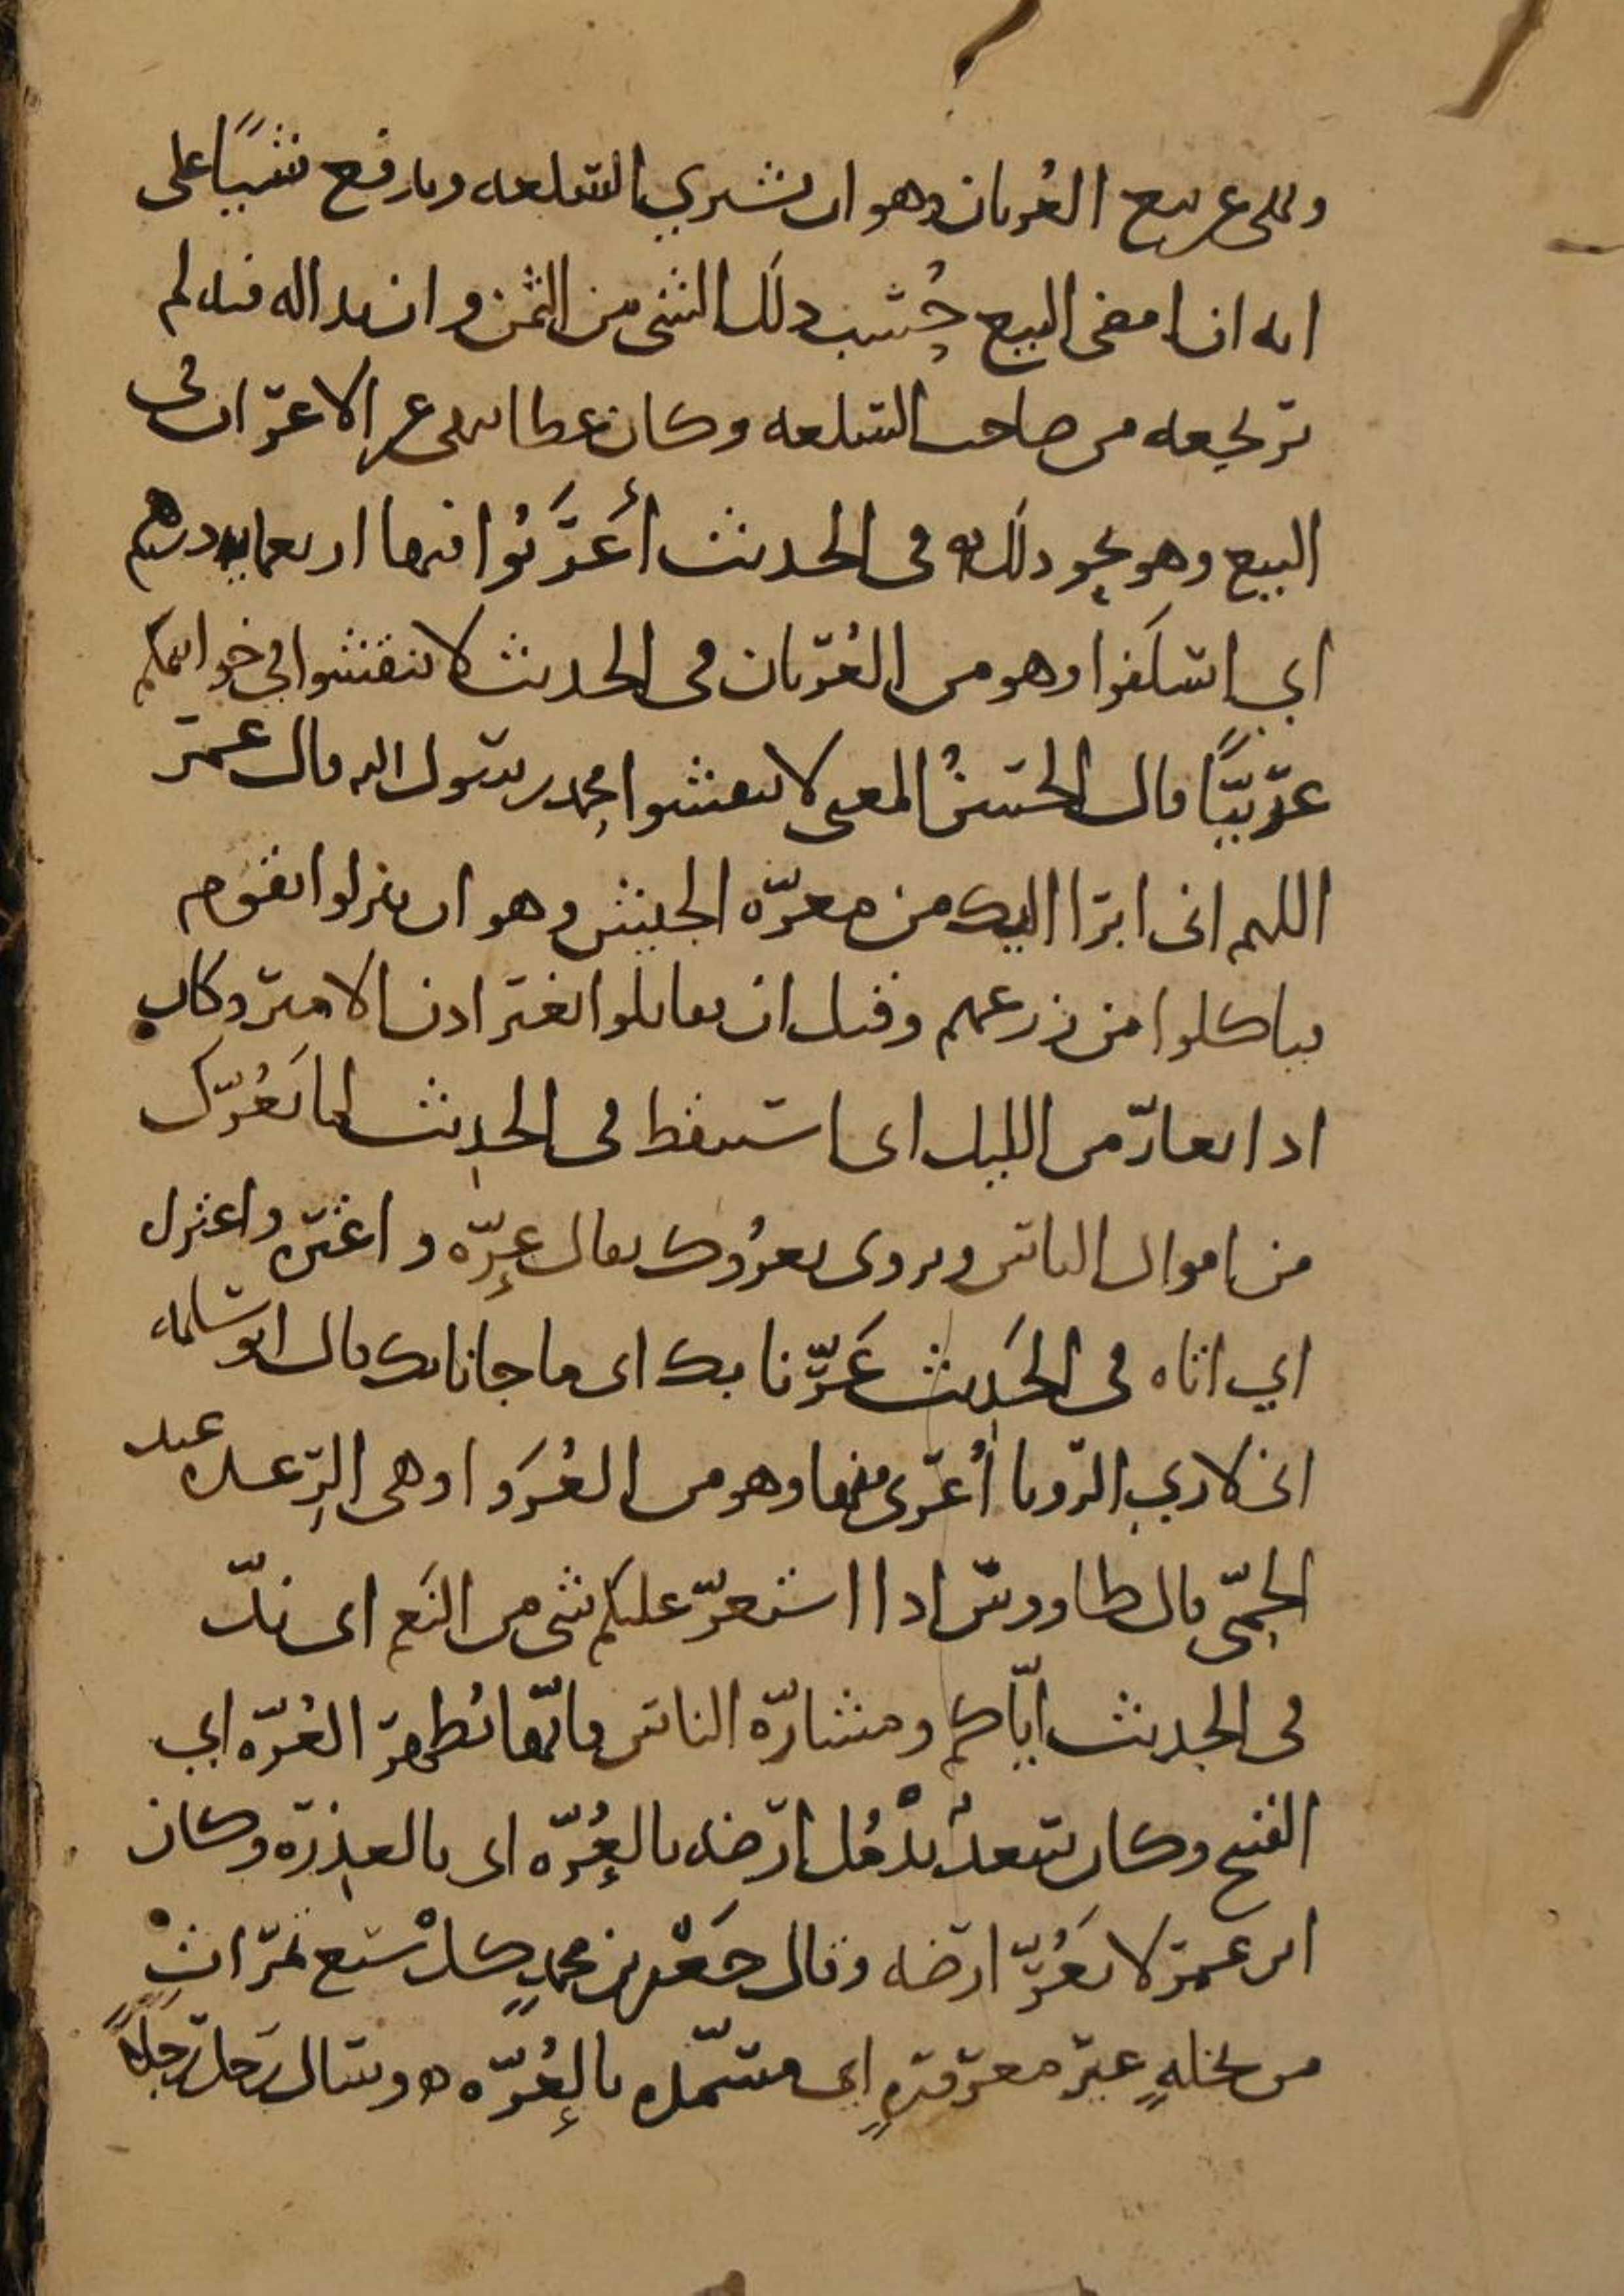 ونهى عن بيع العُربان وهو ان يشتري السلعه ويدفع شيئًا على
انه ان امضى البيع حُسب ذلك الشى من الثمن وان بدا له فيه لم
يرتجعه من صاحب السلعه وكان عطا ينهى عن الاعراب فى
البيع وهو نحو ذلك ه فى الحديث أعرَبُوا فيها اربعمايه درهم
اي اسلَفوا وهو من العُربان فى الحديث لا تنقشوا في خواتمكم
عربيًّا قال الحسنُ المعنى لا تنقشوا محمد رسول الله قال عمر
اللهم انى ابرا اليك من معرّه الجيش وهو ان ينزلوا بقوم
فياكلوا من زرعهم وقيل ان يقاتلوا بغير اذن الامير وكان
اذا تعارّ من الليل اى استيقظ فى الحديث لما يَعُرّك
من اموال الناس ويروى يعرُوك يقال عرّه واعتره واعتراه
اي اتاه فى الحديث عَرّنا بك اى ما جانا بك قال ابو سلمه
انى لاري الرويا أُعرى منها وهو من العُرَوا وهى الرِّعده عند
الحمّى قال طاووس اذا استعرّ عليكم شى من النَعم اى ندّ
فى الحديث ايّاكم ومشارّه الناس فانّها تُظهر العُرّه اي
القبح وكان سعد يُدْمُل ارضه بالعُرّه اى بالعذره وكان
ابن عمر لا يَعُرّ ارضه وقال جَعْفر بن محمدٍ كُلْ سبع تمراتٍ
من نخلهٍ غير معرورهٍ اي مسمّده بالعُرّه ه وسال رجل رجلًا